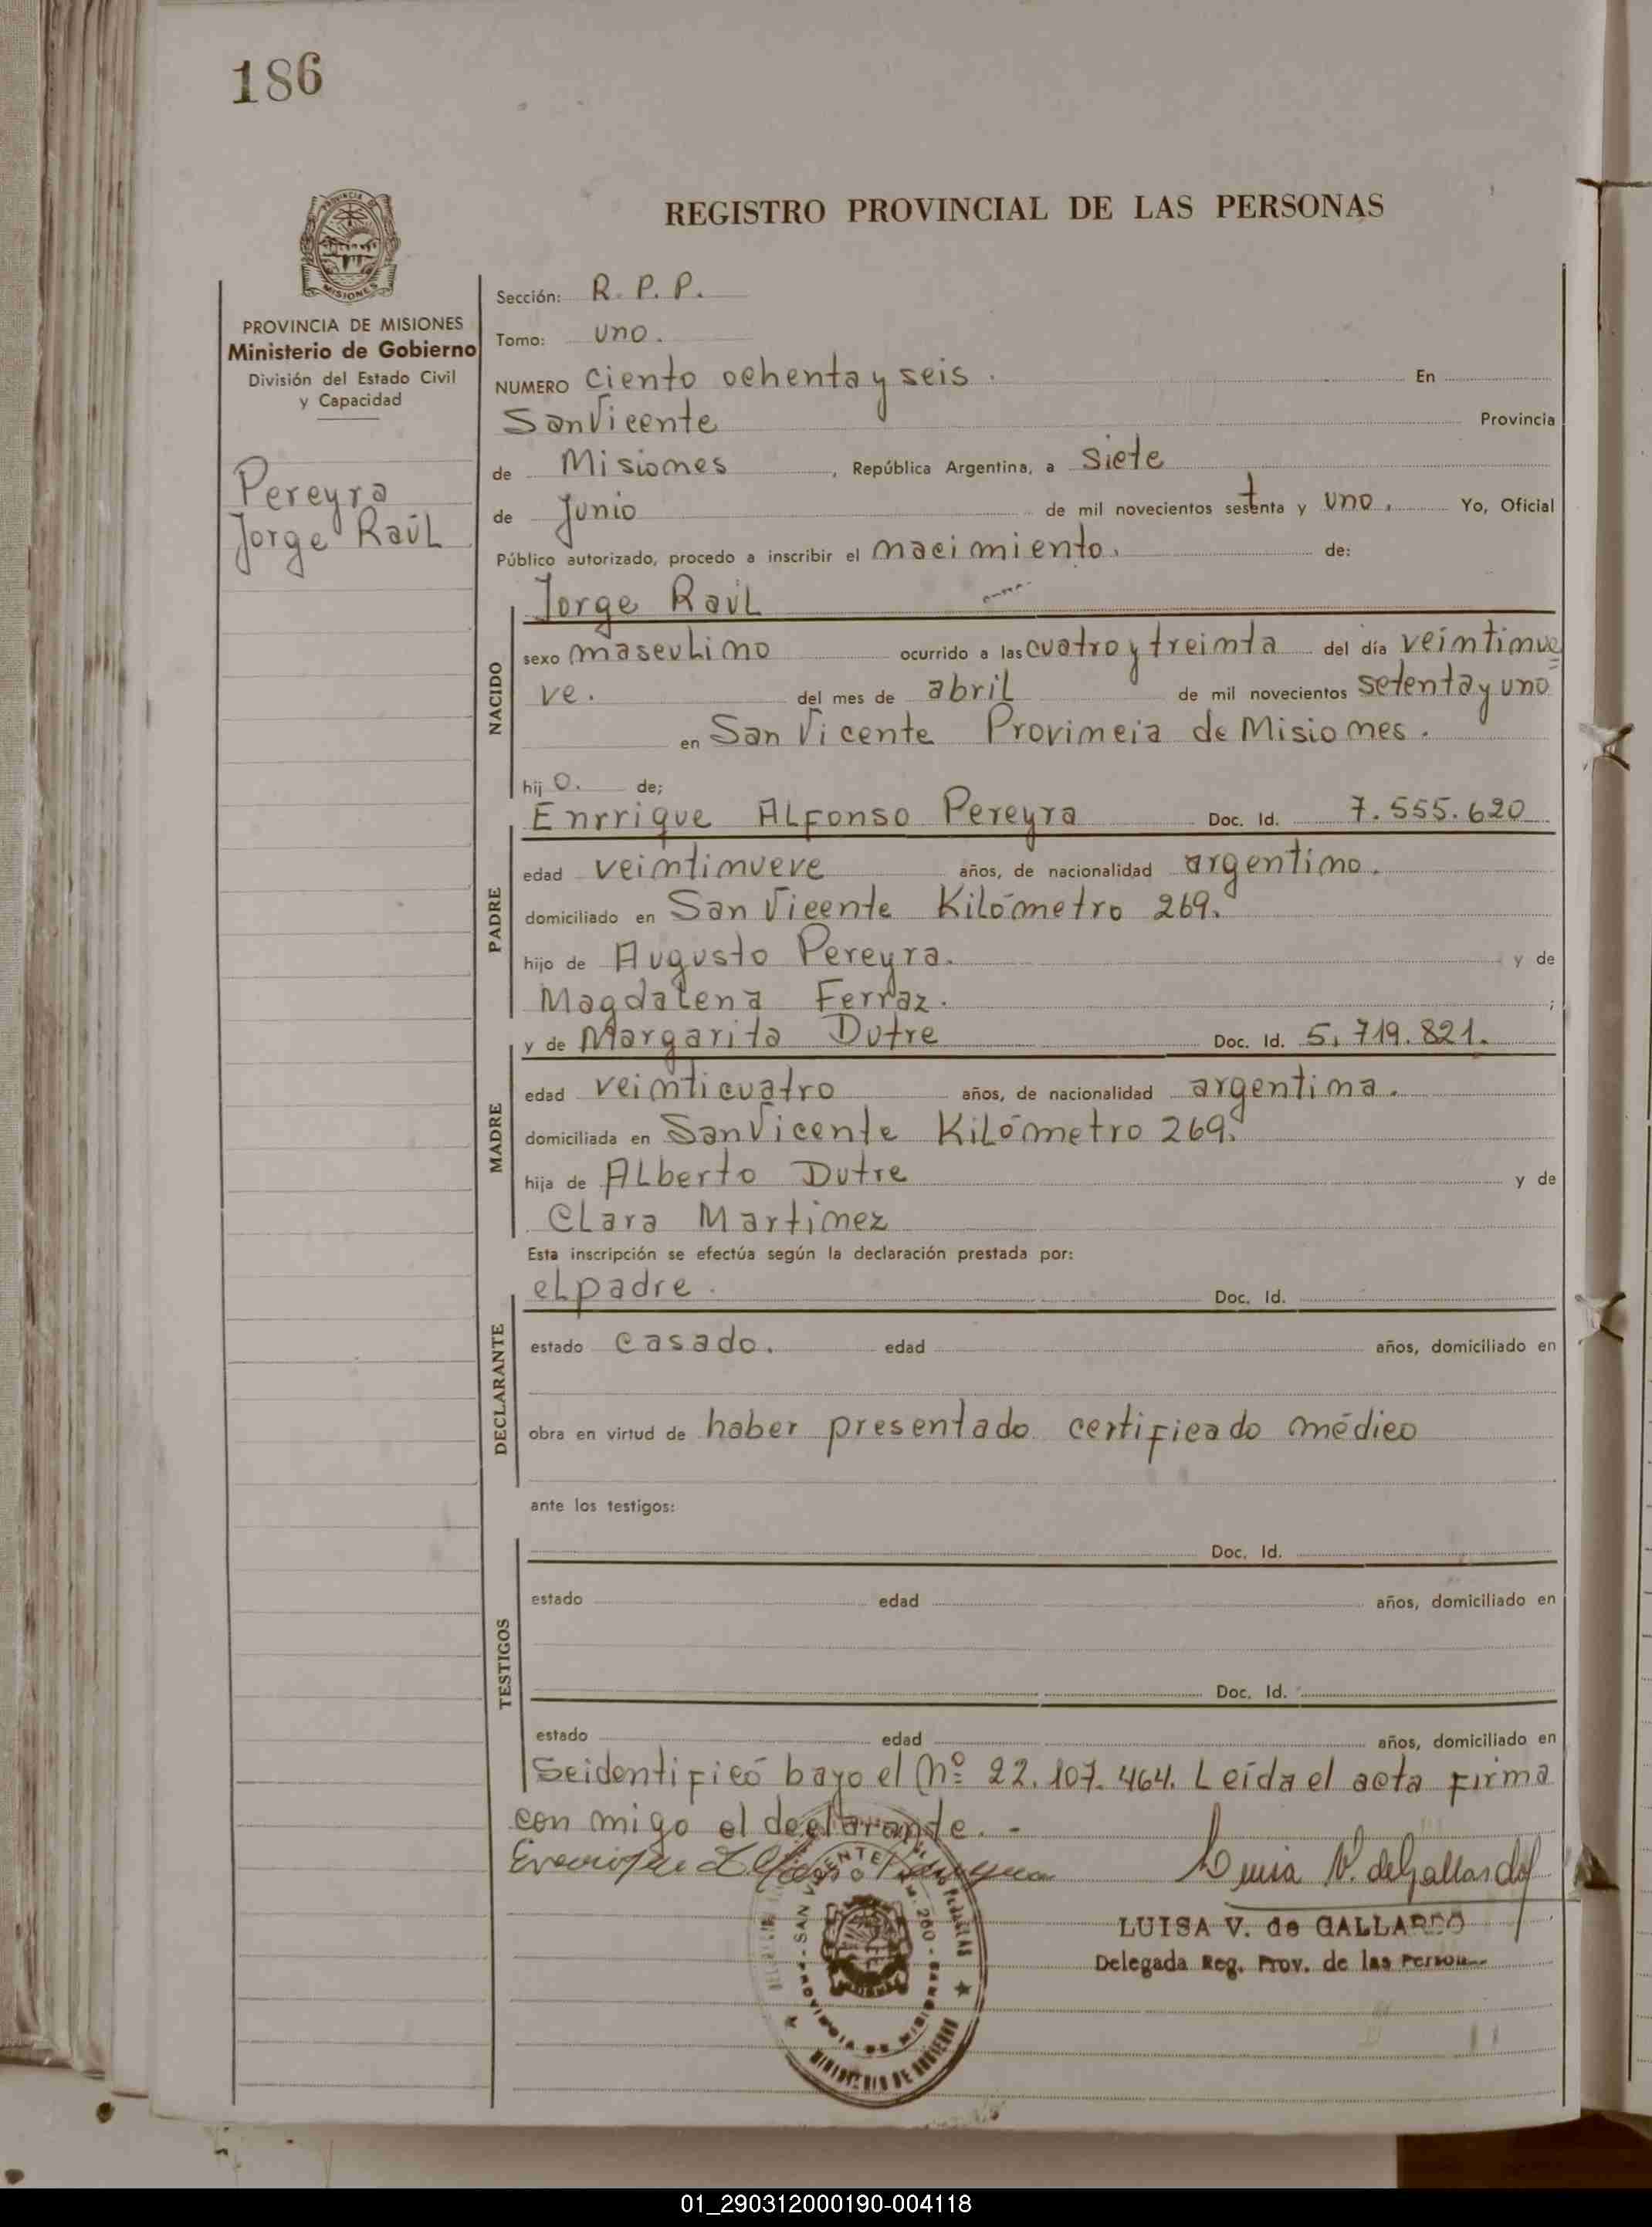 186
REGISTRO PROVINCIAL DE LAS PERSONAS
MISIONES
PROVINCIA DE MISIONES
Ministerio de Gobierno
División del Estado Civil
y Capacidad
Pereyra
Jorge Raúl
Sección: R. P. P.
Tomo: uno.
NUMERO ciento ochenta y seis. En
San Vicente Provincia
de Misiones, República Argentina, a siete
de Junio de mil novecientos setenta y uno. Yo, Oficial
Público autorizado, procedo a inscribir el nacimiento. de:
Jorge Raúl
NACIDO
sexo masculino ocurrido a las cuatro y treinta del día veintinue
ve. del mes de abril de mil novecientos setenta y uno
en San Vicente Provincia de Misiones.
hij o. de;
Enrrique Alfonso Pereyra Doc. Id. 7.555.620
PADRE
edad veintinueve años, de nacionalidad argentino.
domiciliado en San Vicente Kilómetro 269.
hijo de Augusto Pereyra. y de
Magdalena Ferraz. ;
y de Margarita Dutre Doc. Id. 5.719.821.
MADRE
edad veinticuatro años, de nacionalidad argentina.
domiciliada en San Vicente Kilómetro 269.
hija de Alberto Dutre y de
Clara Martinez
Esta inscripción se efectúa según la declaración prestada por:
el padre. Doc. Id.
DECLARANTE
estado casado. edad años, domiciliado en
obra en virtud de haber presentado certificado médico
ante los testigos:
Doc. Id.
TESTIGOS
estado edad años, domiciliado en
Doc. Id.
estado edad años, domiciliado en
Se identificó bayo el Nº 22.107.464. Leída el acta firma
con migo el declarante. -
Luisa V. de Gallardo
LUISA V. de GALLARDO
Delegada Reg. Prov. de las
SAN VICENTE
PROVINCIA DE MISIONES
MINISTERIO DE GOBIERNO
01_290312000190-004118